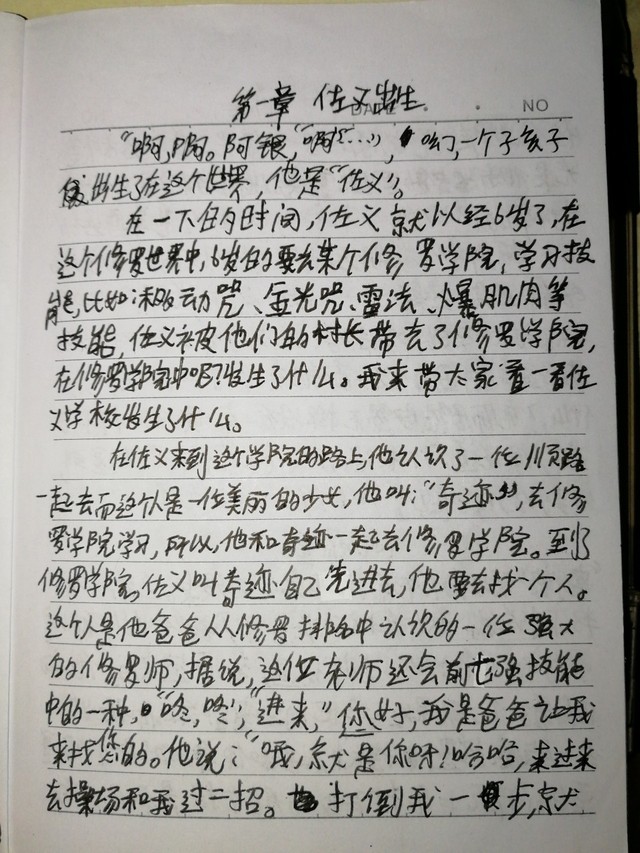 第一章 佐义出生
DATE NO
“啊,啊。阿银,“啊”……”, 一个子孩子
出生了在这个世界,他是“佐义”。
在一下白的时间,佐义就以经6岁了,在
这个修罗世界中,6岁的要去某个修罗学院,学习技
能,比如:极动咒、金光咒、雷法、爆肌肉等
技能,佐义被他们的村长带去了修罗学院,
在修罗学院中呢?发生了什么。我来带大家看一看佐
义学校发生了什么。
在佐义来到这个学院的路上他认识了一位顺路
一起去而这个人是一位美丽的少女,他叫:“奇迹”,去修
罗学院学习,所以,他和奇迹一起去修罗学院。到了
修罗学院,佐义叫奇迹自己先进去,他要去找一个人。
这个人是他爸爸从修罗排险中认识的一位强大
的修罗师,据说,这位老师还会前七强技能
中的一种,“咚,咚”,“进来,”你好,我是爸爸让我
来找您的。他说:“哦,就是你呀!哈哈,来过来
去操场和我过二招。打倒我一步,就